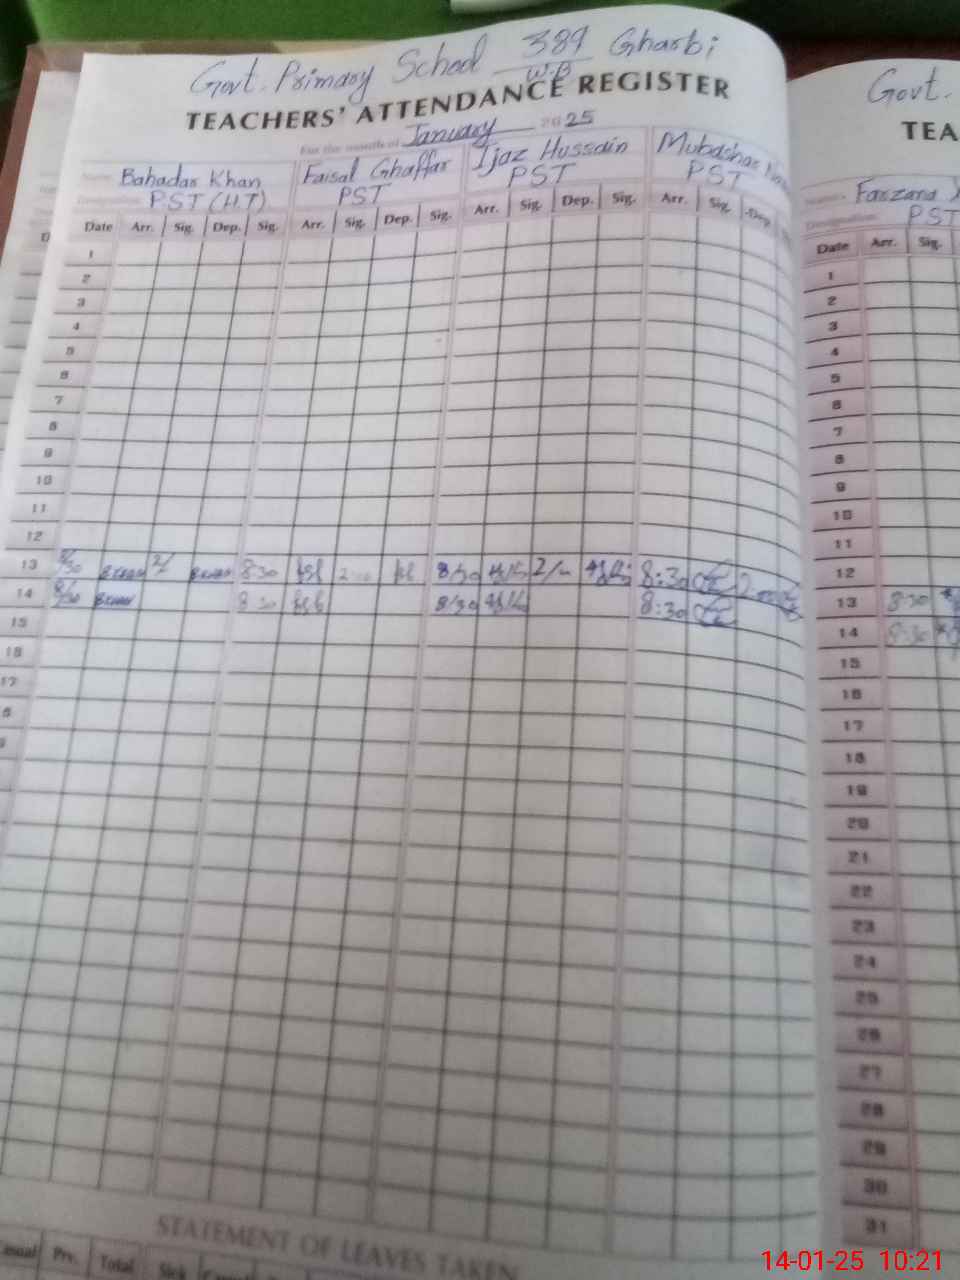 Govt. Primary School 389 Gharbi
W-B
TEACHERS' ATTENDANCE REGISTER
For the month of January 2025
Bahadar Khan Faisal Ghaffar Ijaz Hussain Mubashar
PST (H.T) PST PST PST
Date Arr. Sig. Dep. Sig. Arr. Sig. Dep. Sig. Arr. Sig. Dep. Sig. Arr. Sig. Dep.
1
2
3
4
5
6
7
8
9
10
11
12
13 8/30 2/ 8:30 8/30 2/- 8:30
14 8/30 8:30 8/30 8:30
15
16
17
STATEMENT OF LEAVES TAKEN
Casual Prv. Total Sick
Govt.
TEA
Farzana
Designation PST
Date Arr. Sig.
1
2
3
4
5
6
7
8
9
10
11
12
13 8:30
14 8:30
15
16
17
18
19
20
21
22
23
24
25
26
27
28
29
30
31
14-01-25 10:21